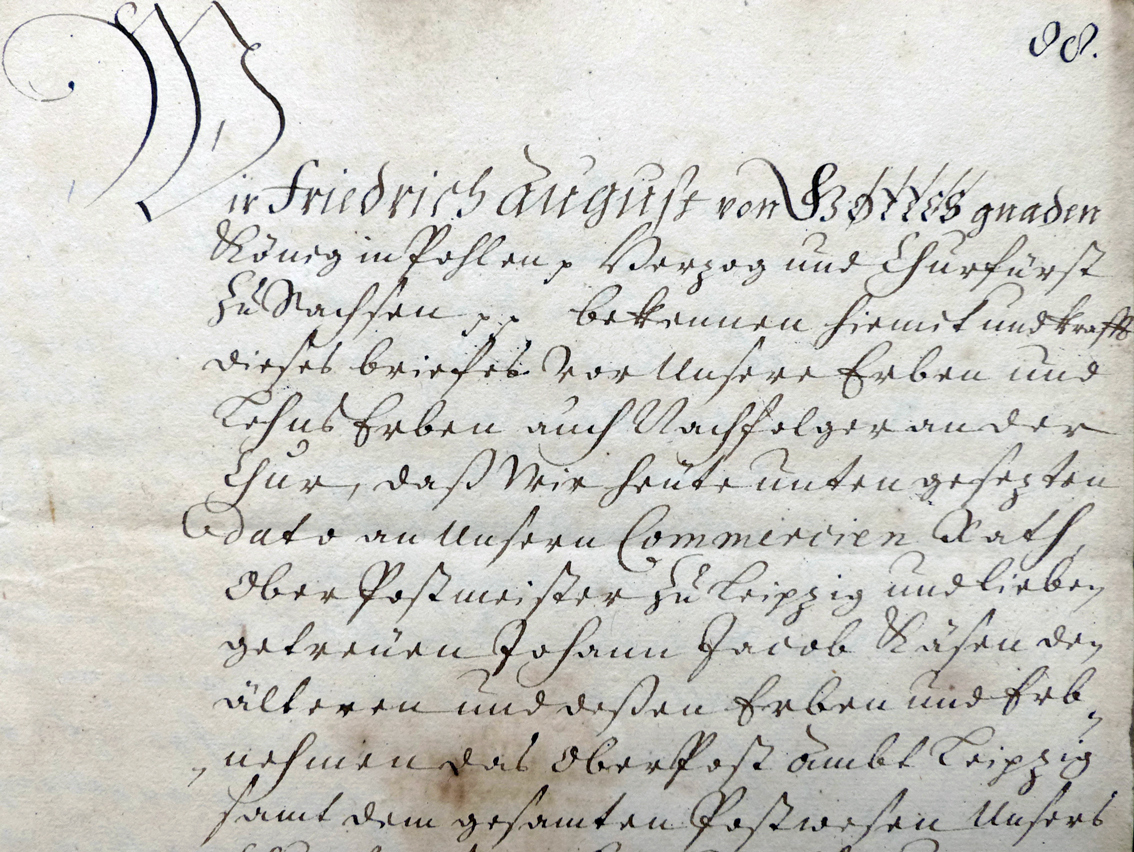 88.
Wir Friedrich August von Gottes gnaden
König in Pohlen p Herzog und Churfürst
Zu Sachsen p. p. bekennen hiemit und krafft
dieses briefes vor Unsere Erben und
Lehns Erben auch Nachfolger an der
Chur, daß Wir heüte unten gesezten
dato an Unsern Commercien Rath,
Ober Postmeister zu Leipzig und lieben
getreüen Johann Jacob Käsen den
älteren und deßen Erben und Erb-
-nehmen das Ober Post Ambt Leipzig
samt dem gesamten Postwesen Unsers